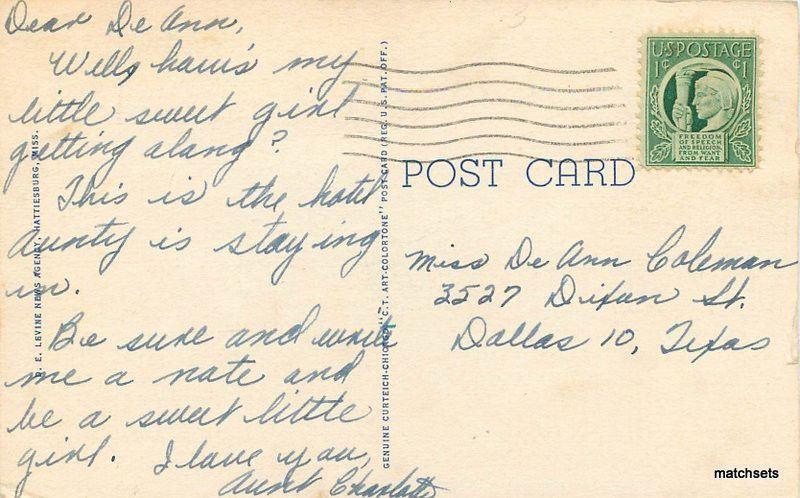 Dear De Ann,
Well, how's my
little sweet girl
getting along?
This is the hotel
Aunty is staying
in.
Be sure and write
me a note and
be a sweet little
girl. I love you,
Aunt Charlotte
E. LEVINE NEWS AGENCY, HATTIESBURG, MISS.
GENUINE CURTEICH-CHICAGO "C.T. ART-COLORTONE" POST CARD (REG. U.S. PAT. OFF.)
U.S. POSTAGE
1¢ ¢1
FREEDOM
OF SPEECH
AND RELIGION,
FROM WANT
AND FEAR
POST CARD
Miss De Ann Coleman
3527 Dixon St.
Dallas 10, Texas
matchsets